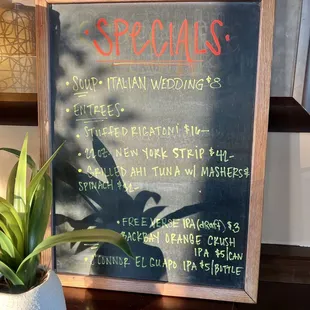 • SPECIALS •
• SOUP • ITALIAN WEDDING $8
• ENTREES •
• STUFFED RIGATONI $16—
• 22oz NEW YORK STRIP $42—
• GRILLED AHI TUNA W/ MASHERS &
SPINACH
• FREE VERSE IPA (draft) $3
BACKBAY ORANGE CRUSH
IPA $5/CAN
O'CONNOR EL GUAPO IPA $5/BOTTLE